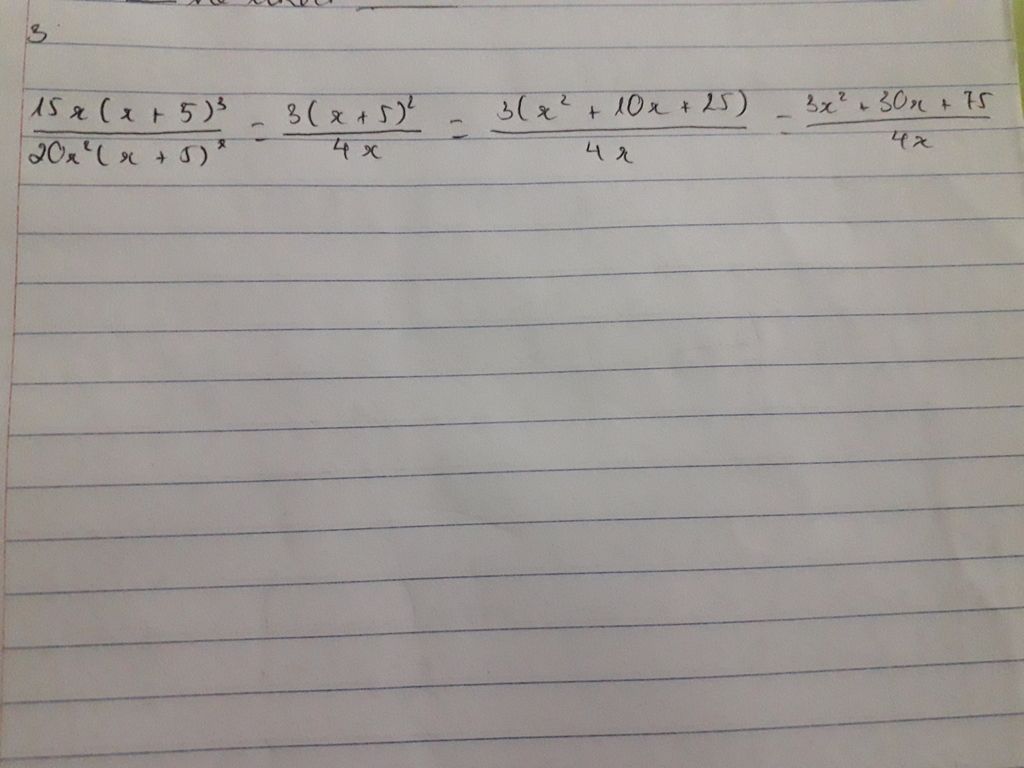 3
15x(x + 5)³ / 20x²(x + 5)² = 3(x + 5)² / 4x = 3(x² + 10x + 25) / 4x = 3x² + 30x + 75 / 4x